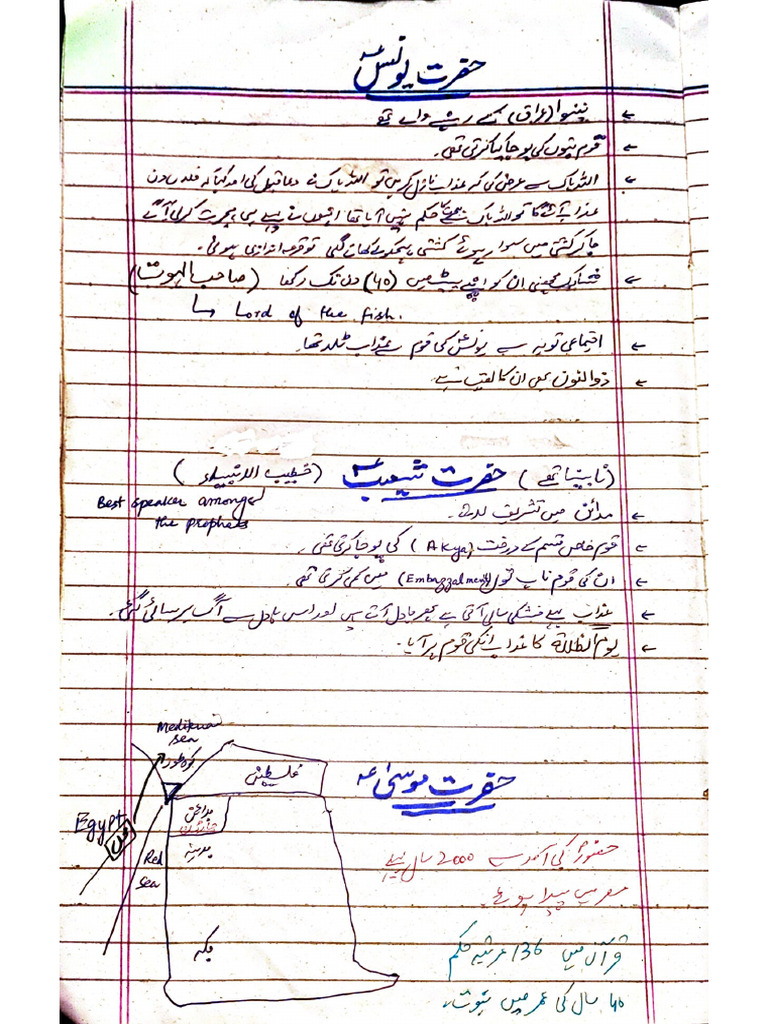 حضرت یونسؑ
← نینوا (عراق) کے رہنے والے تھے
← قوم بتوں کی پوجا کیا کرتی تھی۔
← اللہ پاک سے عرض کی کہ عذاب نازل کریں تو اللہ پاک نے دعا قبول کی اور کہا کہ فلاں دن
عذاب آئے گا تو اللہ پاک کا حکم نہیں آیا تھا انہوں نے پہلے ہی ہجرت کر لی آگے
جا کر کشتی میں سوار ہوئے کشتی ہچکولے کھانے لگی تو قرعہ اندازی ہوئی۔
← ان کو اپنے پیٹ میں (40) دن تک رکھا (صاحب الہوت)
↳ Lord of the fish.
← اجتماعی توبہ سے یونسؑ کی قوم سے عذاب ٹلا تھا۔
← ذوالنون بھی ان کا لقب ہے۔
(نابینا تھے) حضرت شعیبؑ (خطیب الانبیاء)
Best speaker amonged
the prophets
← مدائن میں تشریف لائے۔
← قوم خاص قسم کے درخت (Akya) کی پوجا کرتی تھی۔
← ان کی قوم ناپ تول (Embazzalment) میں کمی کرتی تھی
← عذاب پہلے خشک سالی آتی ہے پھر بادل آتے ہیں اور اسی بادل سے آگ برسائی گئی۔
← یوم الظلالة کا عذاب انکی قوم پر آیا۔
حضرت موسیٰؑ
sea
کوہ طور
فلسطین
Egypt
Red
sea
مدائن
مدینہ
مکہ
حضورؐ کی آمد سے 2000 سال پہلے
مصر میں پیدا ہوئے۔
قرآن میں 136 مرتبہ
40 سال کی عمر میں نبوت